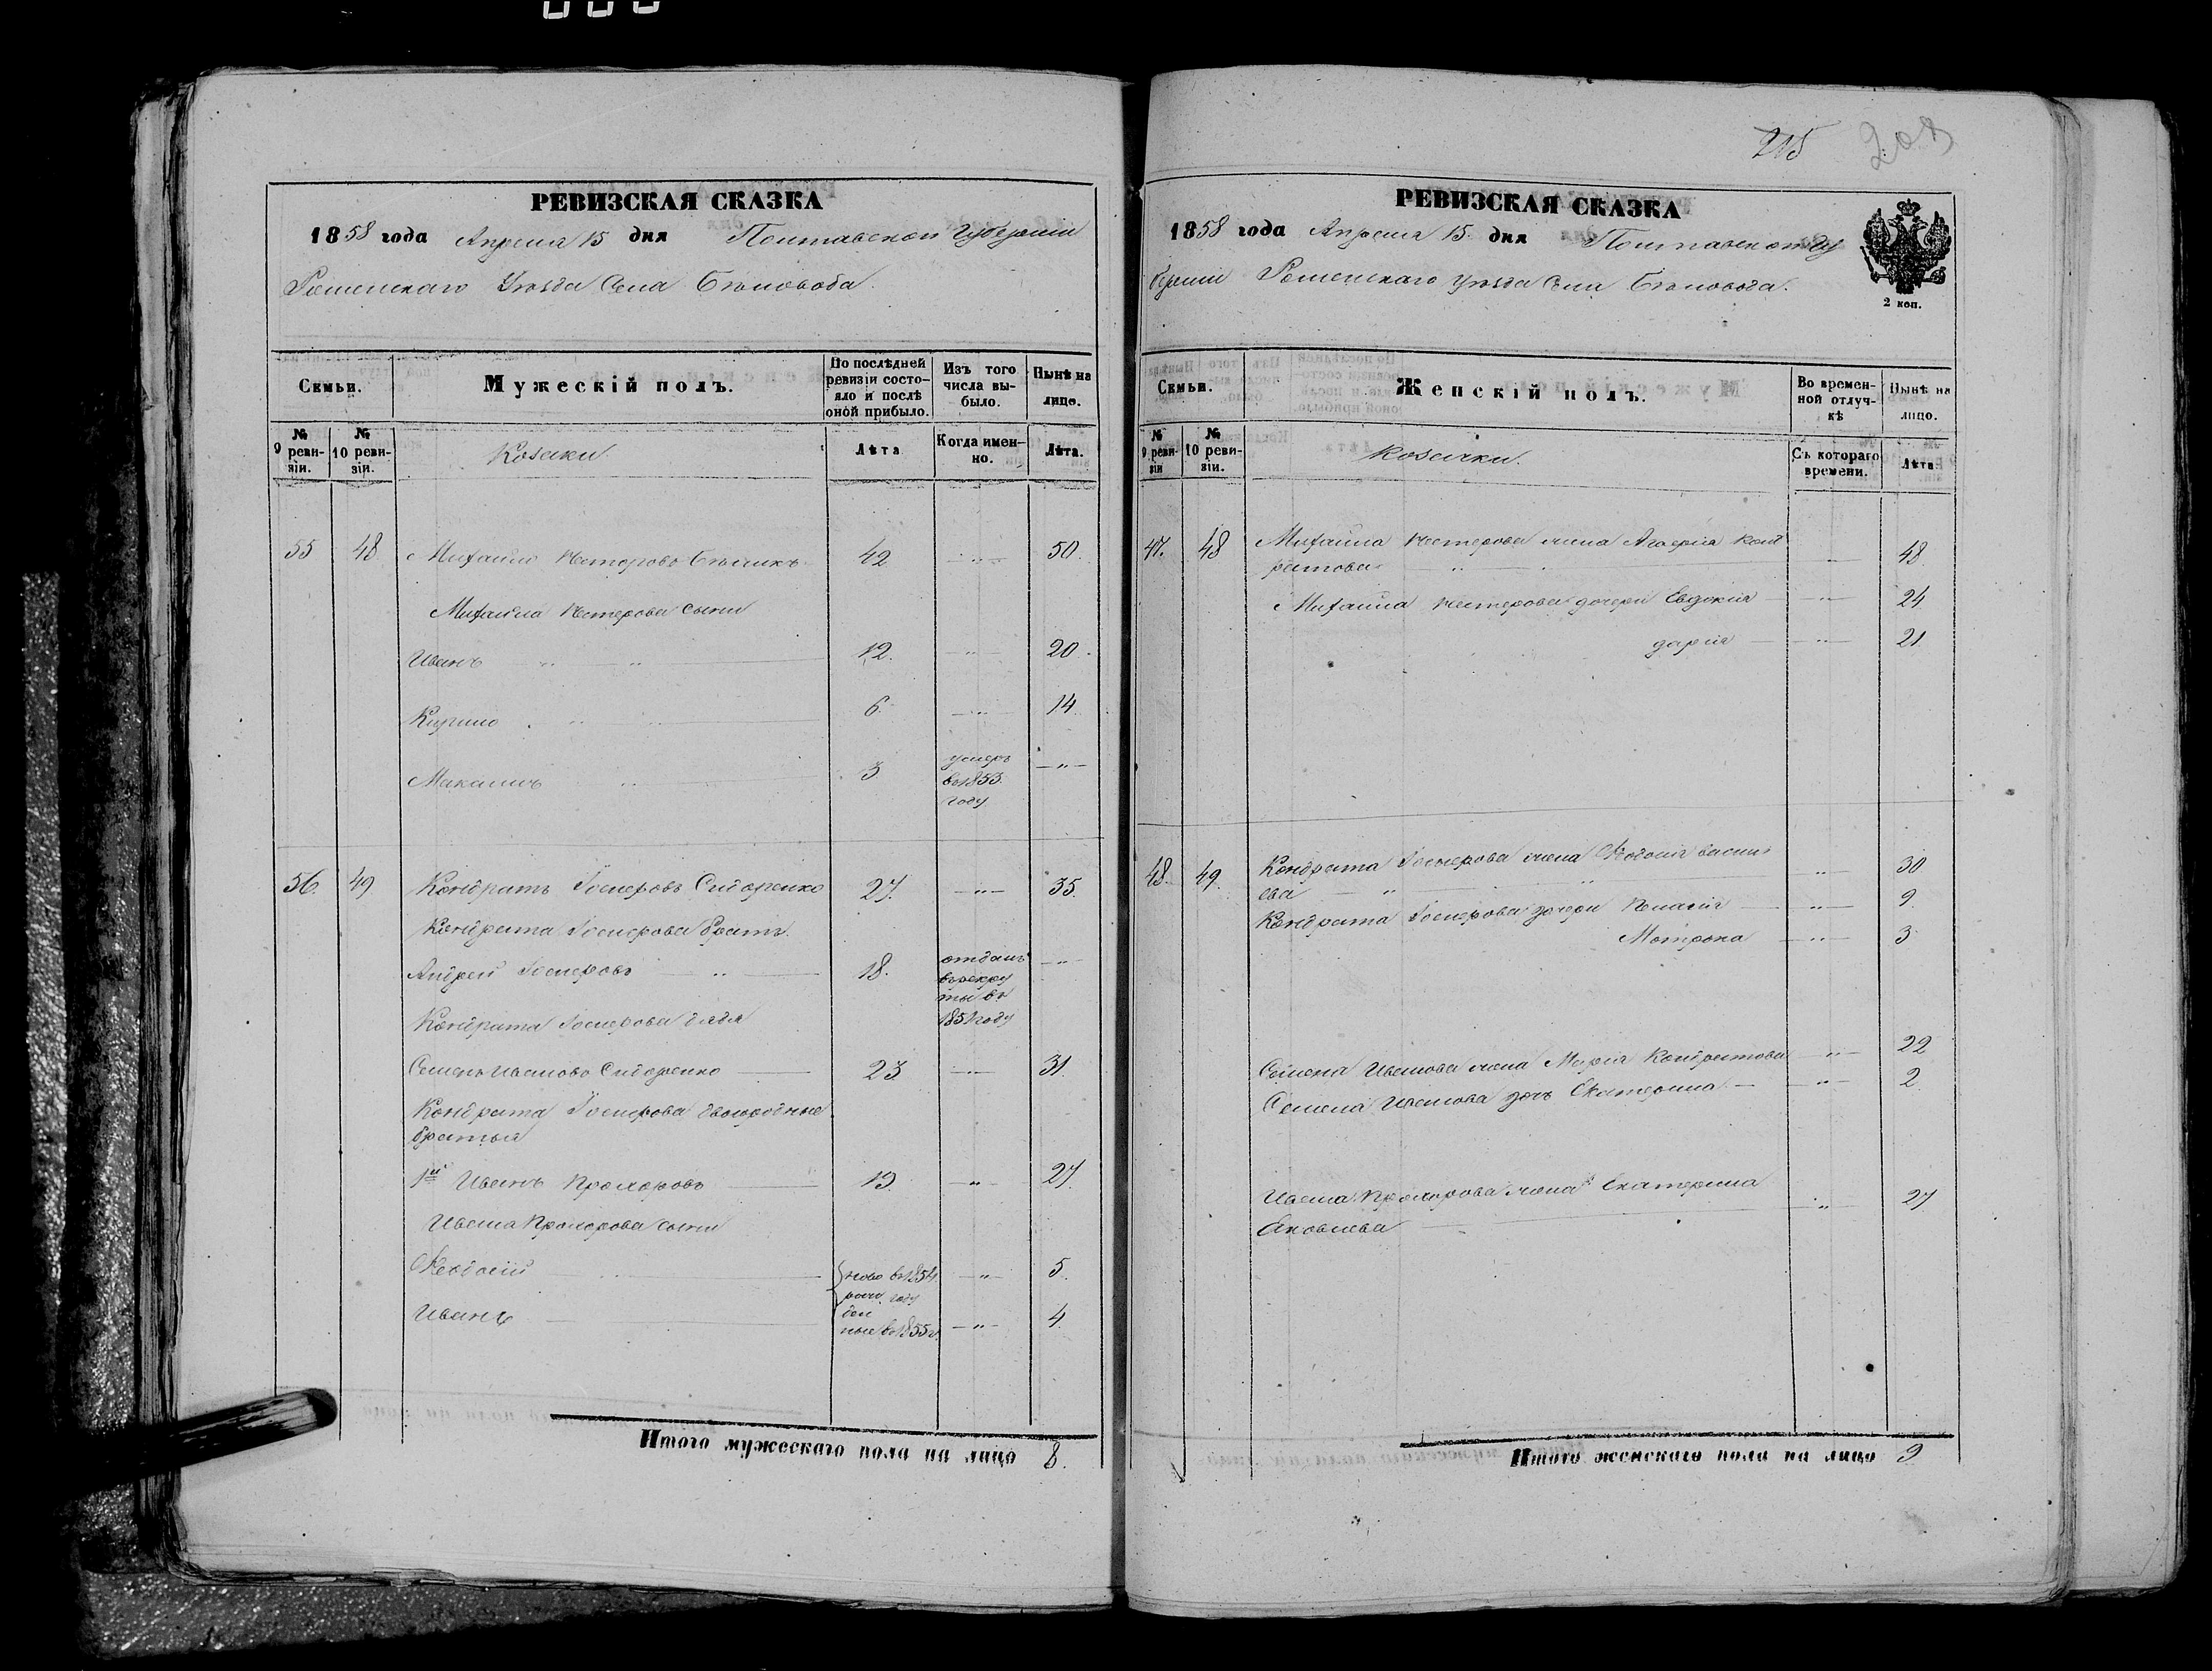 РЕВИЗСКАЯ СКАЗКА
1858 года Апреля 15 дня Полтавской Губернии
Роменскаго Уезда Села Беловода.
Семьи.
Мужескій полъ.
По послѣдней ревизіи состояло и послѣ оной прибыло.
Изъ того числа выбыло.
Нынѣ на лицо.
№ 9 ревизіи.
№ 10 ревизіи.
Козаки
Лѣта
Когда именно.
Лѣта.
55 48 Михайло Нестеровъ 42 50.
Михайла Нестерова сыни
Иванъ 12. 20.
Кирило 6. 14.
Максимъ 3 умеръ въ 1853. году
56. 49 Кондратъ Сидоренко 27. 35.
Кондрата братъ.
Андрей 18. отданъ въ рекруты въ 1851 году
Кондрата дядя
Семенъ Ивановъ Сидоренко 23 31.
Кондрата двоюродные
братья
1й Иванъ Прохоровъ 19. 27.
Ивана Прохорова сыни
Феодосій ново въ 1854. году 5.
Иванъ рожденные въ 1855 г. 4.
Итого мужескаго пола на лицо 8.
215 208
РЕВИЗСКАЯ СКАЗКА
1858 года Апреля 15. дня Полтавской Гу
берніи Роменскаго уезда Села Беловода.
2 коп.
Семьи.
Женскій полъ.
Во временной отлучкѣ
Нынѣ на лицо.
№ 9 ревизіи
№ 10 ревизіи.
Козачки.
Съ котораго времени.
Лѣта
47. 48 Михайла Нестерова жена Агафія Конд
ратова 48.
Михайла Нестерова дочери Евдокия 24.
Дарія 21.
48. 49. Кондрата жена Феодосія Василь
ева 30
Кондрата дочери Пелагія 9.
Мотрона 3
Семена Иванова жена Марія Кондратова 22
Семена Иванова дочь Екатерина 2.
Ивана Прохорова жена Екатерина
Яковлева 27
Итого женскаго пола на лицо 9